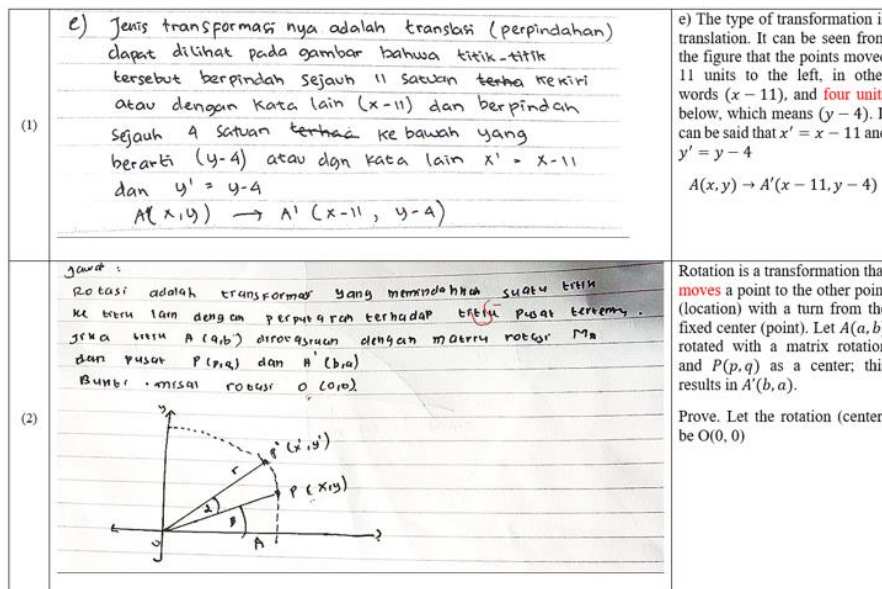 (1)
e) Jenis transformasi nya adalah translasi (perpindahan)
dapat dilihat pada gambar bahwa titik-titik
tersebut berpindah sejauh 11 satuan kekiri
atau dengan kata lain (x-11) dan berpindah
sejauh 4 satuan ke bawah yang
berarti (y-4) atau dgn kata lain x' = x-11
dan y' = y-4
A(x,y) → A' (x-11, y-4)
e) The type of transformation i
translation. It can be seen from
the figure that the points moved
11 units to the left, in othe
words (x − 11), and four unit
below, which means (y − 4). I
can be said that x′ = x − 11 and
y′ = y − 4
A(x, y) → A′(x − 11, y − 4)
(2)
Jawab :
Rotasi adalah transformasi yang memindahkan suatu titik
ke titik lain dengan perputaran terhadap titik pusat tertentu.
Jika titik A (a,b) dirotasikan dengan matriks rotasi
dan pusat P (p,q) dan A' (b,a)
Bukti . misal rotasi O (0,0)
y
P' (x',y')
r
P (x,y)
α
β
O
A
Rotation is a transformation tha
moves a point to the other poin
(location) with a turn from the
fixed center (point). Let A(a, b
rotated with a matrix rotation
and P(p, q) as a center; thi
results in A′(b, a).
Prove. Let the rotation (center
be O(0, 0)